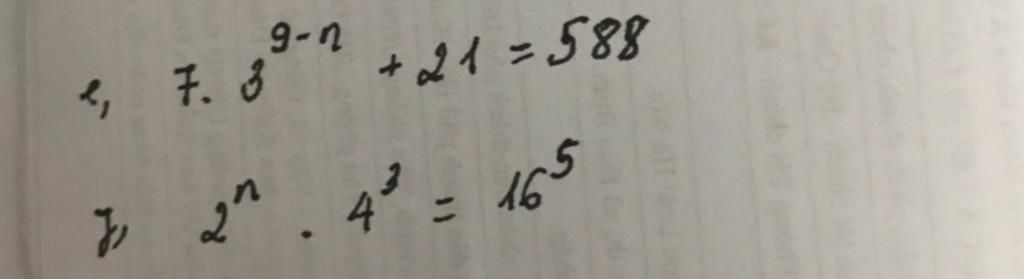 e, 7. 3^{9-n} + 21 = 588
f, 2^n . 4^3 = 16^5